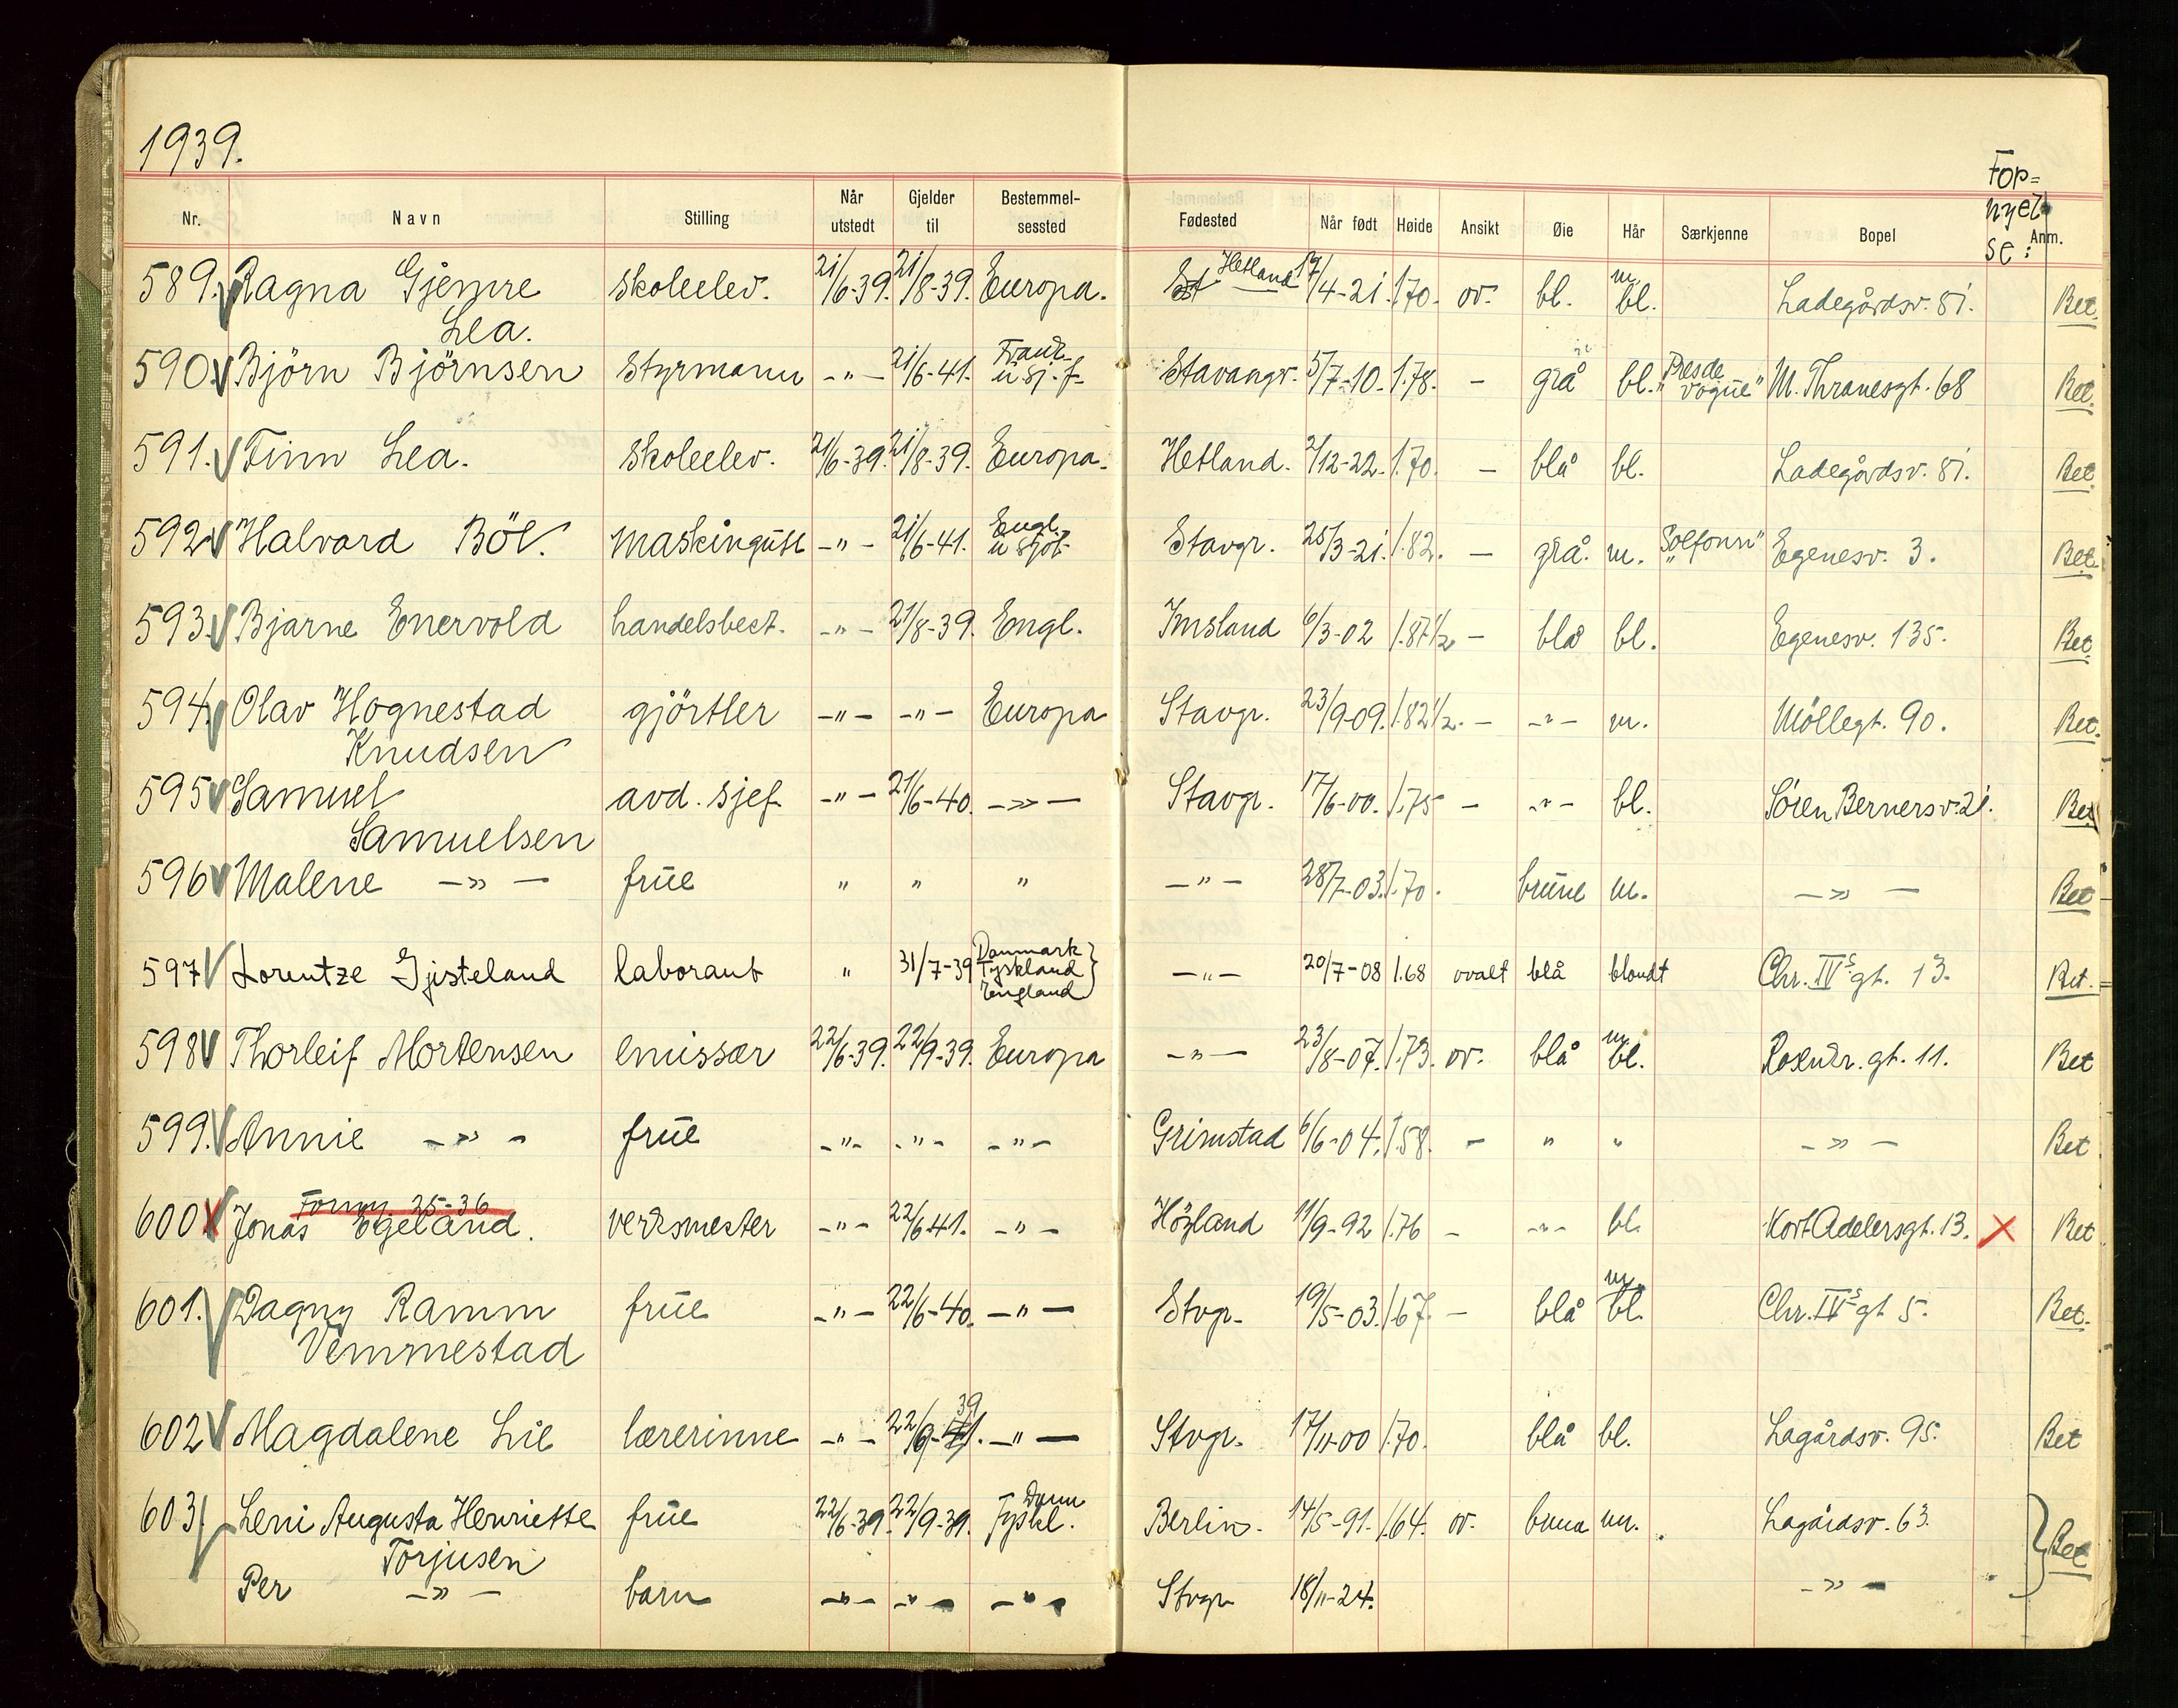 1939.
For=
nyel
se:
Nr. Navn Stilling Når utstedt Gjelder til Bestemmelsessted Fødested Når født Høide Ansikt Øie Hår Særkjenne Bopel Anm.
589. Ragna Gjemre Lea. skoleelev. 21/6-39. 21/8-39. Europa. Hetland 17/4-21. 1.70. ov. bl. m. bl. Ladegårdsv. 81. Bet.
590 Björn Björnsen styrmann -"- 21/6-41. Frankr. u sj.f. Stavangr. 5/7-10. 1.78. - grå bl. "Presde vogue" M. Thranesgt. 68 Bet.
591. Finn Lea. skoleelev. 21/6-39. 21/8-39. Europa. Hetland. 2/12-22. 1.70. - blå bl. Ladegårdsv. 81. Bet.
592 Halvard Böe. maskingutt -"- 21/6-41. Engl. u sjöf. Stavgr. 25/3-21. 1.82. - grå. m. "Solfonn" Egenesv. 3. Bet.
593. Bjarne Enervold handelsbest. -"- 21/8-39. Engl. Imsland 6/3-02 1.87 1/2 - blå bl. Egenesv. 135. Bet.
594. Olav Hognestad Knudsen gjörtler -"- -"- Europa Stavgr. 23/9-09. 1.82 1/2. - -"- m. Möllegt. 90. Bet.
595 Samuel Samuelsen avd. sjef -"- 21/6-40. -"- Stavgr. 17/6-00. 1.75 - -"- bl. Sören Berners v. 21. Bet
596 Malene -"- frue " " " -"- 28/7-03. 1.70. brune m. -"- Bet
597 Lorentze Gjisteland laborant " 31/7-39 Danmark Tyskland England } -"- 20/7-08 1.68 ovalt blå blondt Chr. IVs gt. 13. Bet.
598 Thorleif Mortensen emissær 22/6-39. 22/9-39. Europa -"- 23/8-07. 1.73. ov. blå m. bl. Rosenkr. gt. 11. Bet
599. Annie -"- frue -"- -"- -"- Grimstad 6/6-04. 1.58. - " " -"- Bet
600 Forny. 25-36 Jonas Egeland. verksmester -"- 22/6-41. -"- Högland 11/9-92 1.76 - -"- bl. Kort Adelersgt. 13. X Bet
601. Dagny Ramm Vemmestad frue -"- 22/6-40. -"- Stvgr. 19/5-03. 1.67. - blå m. bl. Chr. IVs gt 5. Bet.
602 Magdalene Lie lærerinne -"- 22/9-39 -"- Stvgr. 17/11-00 1.70. blå bl. Lagårdsv. 95. Bet
603 Leni Augusta Henriette Torjusen frue 22/6-39. 22/9-39. Danm Tyskl. Berlin. 14/5-91. 1.64. ov. bruna m. Lagårdsv. 63. } Bet
Per -"- barn -"- -"- -"- Stvgr 18/11-24. -"-